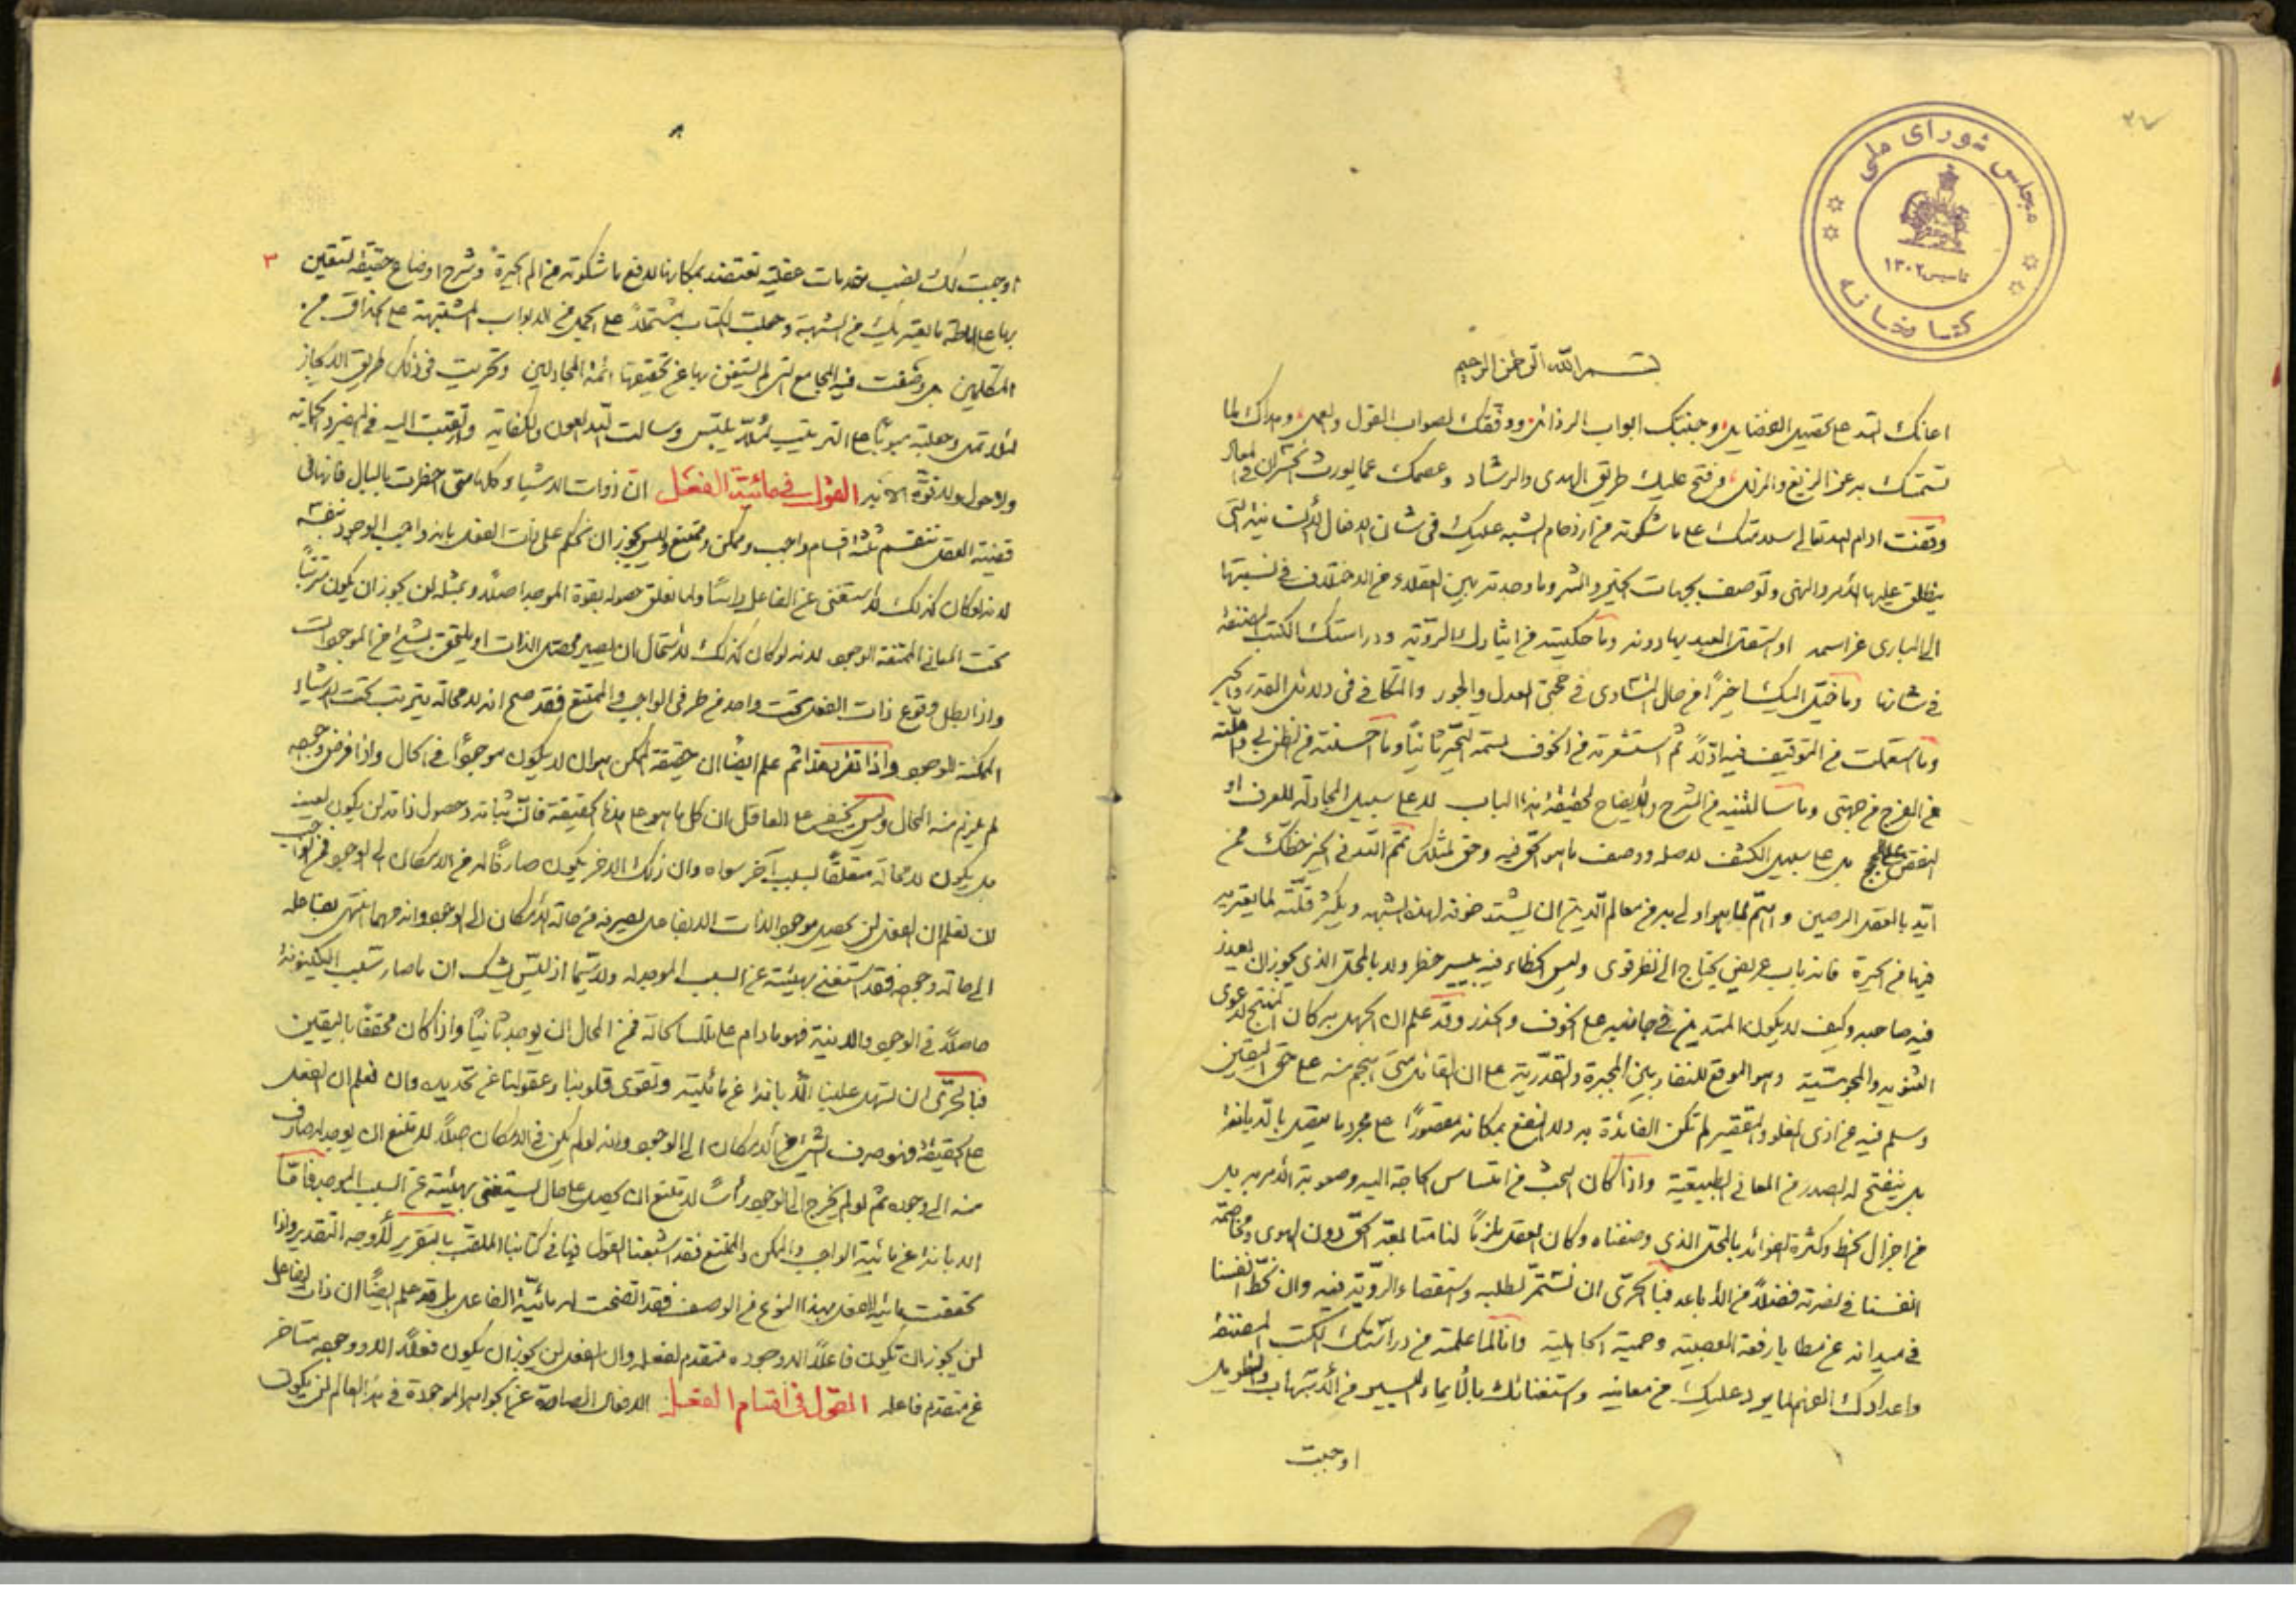 ۳۷
مجلس شورای ملی
تاسیس ۱۳۰۲
کتابخانه
بسم الله الرحمن الرحیم
اعانک الله علی تحصیل الفضایل وجنبک ابواب الرذائل ووفقک لصواب القول والعمل وهداک لما
تسلم به عن الزیغ والزلل وفتح علیک طریق الهدی والرشاد وعصمک عما یورث الخسران فی المعاد
وقفت ادام الله تعالی سلامتک علی ما شکوته من ازدحام الشبه علیک فی شان الافعال الانسانیة التی
ینطلق علیها الامر والنهی وتوصف بجهات الخیر والشر وما وجدته بین العقلاء من الاختلاف فی نسبتها
الی الباری عز اسمه او استقلال العبد بها دونه وما حکیته من ایثارک الرویة ودراستک الکتب المصنفة
فی شانها وما خیل الیک اخیرا من حال التساوی فی حجتی العدل والجور والتکافی فی دلائل القدر والجبر
وما استعملت من التوقیف فیه اولا ثم استشعرته من الخوف لتحیر ثانیا وما احسنته من الظن بی واملته
من الفرج من جهتی وما سالتنیه من الشرح والایضاح لحقیقة هذا الباب لا علی سبیل المجادلة للفرق او
النقض علی الحجج بل علی سبیل الکشف لاصله ووصف ما هو الحق فیه وحق لمثلک تمم الله فی الخیر حظک ممن
اید بالعقل الرصین واهتم لما هو اولی به من معالم الدین ان یشتد خوفه لهذه الشبه ویکثر قلقه لما یعتریه
فیها من الحیرة فانه باب عریض یحتاج الی نظر قوی ولیس الخطاء فیه بیسیر خطر ولا بالمحل الذی یجوز ان یعذر
فیه صاحبه وکیف لا یکون المتدین فی جانبیه علی الخوف والحذر وقد علم ان الجهل به کان المنتج لدعوی
الثنویه والمجوسیة وهو الموقع للتنافر بین المجبرة والقدریة علی ان القائل متی هجم منه علی حق الیقین
وسلم فیه من اذی الغلو والتقصیر لم تکن الفائدة به ولا النفع بمکانه مقصورا علی مجرد ما یتصل بالدیانة
بل ینفتح له الصدر من المعانی الطبیعیة واذا کان البحث من التماس الحاجة الیه وصعوبة الامر به بل
من اجزال الحظ وکثرة الفوائد بالمحل الذی وصفناه وکان العقل یلزمنا لنا متابعة الحق دون الهوی ومخاصمة
انفسنا فی نصرته فضلا من الاباعد فبالحری ان نشمر لطلبه واستقصاء الرویة فیه وان نحط انفسنا
فی میدانه عن مطایا رفعة العصبیة وحمیة الجاهلیة وانا لما علمته من دراستک الکتب المصنفة
واعدادک الفهم لما یرد علیک من معانیه واستغنائک بالایماء الیسیر من الاسهاب والتطویل
اوجبت
۳
اوجبت لک نصب مقدمات عقلیة تعتضد بمکانها لدفع ما شکوته من الم الحیرة وشرح اوضاع حقیقة لتیقن
بها علی اماطة ما یعتریک من الشبهة وجعلت الکتاب مشتملا علی الجمل من الابواب المشتبهة علی الحذاق من
المتکلمین بل وضعت فیه المجامع التی لم یستغن بها عن تحقیقها ائمة المجادلین وتحریت فی ذلک طریق الایجاز
لئلا تمل وجعلته مبوبا علی الترتیب لئلا یلتبس وسالت الله العون والکفایه
ولا حول ولا قوة الا به القول فی مائیة الفعل ان ذوات الاشیاء کلها متی اخطرت بالبال فانها فی
قضیة العقل تنقسم ثلثة اقسام واجب وممکن وممتنع ولیس یجوز ان نحکم علی ذات الفعل بانه واجب الوجود بنفسه
لانه لو کان کذلک لاستغنی عن الفاعل راسا ولما تعلق حصوله بقوة الموجد اصلا وبمثله لن یجوز ان یکون مترتبا
تحت المعانی الممتنعة الوجود لانه لو کان کذلک لاستحال ان یصیر محصل الذات او یلتحق بشیء من الموجودات
واذا بطل وقوع ذات الفعل تحت واحد من طرفی الواجب والممتنع فقد صح انه لا محالة یترتب تحت الاشیاء
الممکنة للوجود واذا تقرر هذا ثم علم ایضا ان حقیقة الممکن هو ان لا یکون موجودا فی الحال واذا فرض وجوده
لم یلزم منه المحال ولیس یخفی علی العاقل ان کل ما هو علی هذه الحقیقة فان ثباته وحصول ذاته لن یکون لعینه
بل یکون لا محالة متعلقا بسبب آخر سواه وان ذلک الاخر یکون صارفا له من الامکان الی الوجود فمن الواجب
ان نعلم ان الفعل لن یحصل موجود الذات الا بفاعل یصرفه من حالة الامکان الی الوجود وانه مهما انتهی بفاعله
الی حالة وجوده فقد استغنی بهیئته عن السبب الموجد له ولا سیما اذ لیس یشک ان ما صار بسبب الکینونة
حاصلا فی الوجود والاینیة فهو ما دام علی تلک الحالة فمن المحال ان یوجد ثانیا واذا کان محققا بالیقین
فبالحری ان یسهل علینا الابانة عن مائیته وتقوی قلوبنا وعقولنا عن تحدیده وان نعلم ان الفعل
علی الحقیقة هو صرف الشیء من الامکان الی الوجود وانه لو لم یکن فی الامکان اصلا لامتنع ان یوجد له صارف
منه الی وجوده ثم لو لم یخرج الی الوجود رأسا لامتنع ان یحصل علی حال یستغنی بهیئته عن السبب الموجد فاما
الابانة عن مائیة الواجب والممکن والممتنع فقد اشبعنا القول فیها فی کتابنا الملقب بالتقریر لاوجه التقدیر واذا
تحققت مائیة الفعل بهذا النوع من الوصف فقد اتضحت له مائیة الفاعل بل قد علم ایضا ان ذات الفاعل
لن یجوز ان تکون فاعلا الا ووجوده متقدم لفعله وان الفعل لن یجوز ان یکون فعلا الا ووجوده متاخر
عن متقدم فاعله القول فی اقسام الفعل الافعال الصادرة عن الجواهر الموجودة فی هذا العالم لن یکون